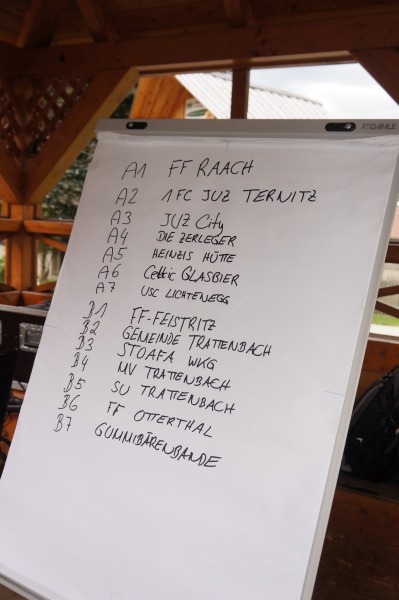 DAHLE
A1 FF RAACH
A2 1 FC JUZ TERNITZ
A3 JUZ City
A4 DIE ZERLEGER
A5 HEINZIS HÜTTE
A6 Celtic GLASBIER
A7 USC LICHTENEGG
B1 FF-FEISTRITZ
B2 GEMEINDE TRATTENBACH
B3 STOAFA WKG
B4 MV TRATTENBACH
B5 SU TRATTENBACH
B6 FF OTTERTHAL
B7 GUMMIBÄRENBANDE